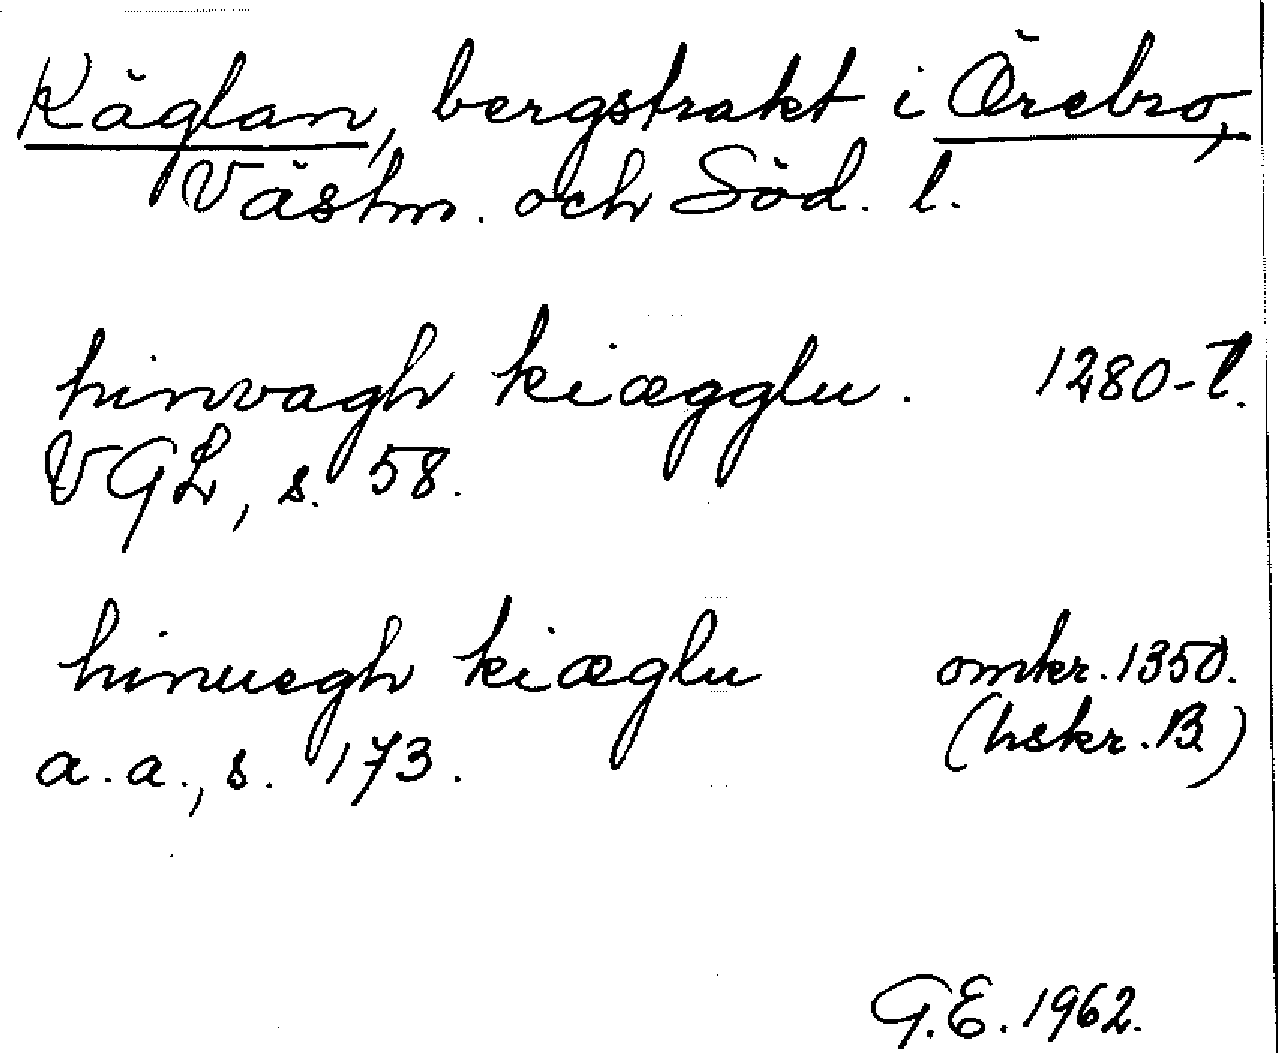 Käglan, bergstrakt i Örebro,
Västm. och Söd. l.
hinvagh kiægglu. 1280-t.
VGL, s. 58.
hinuegh kiæglu omkr. 1350.
a.a., s. 173. (hskr. B)
G.E. 1962.